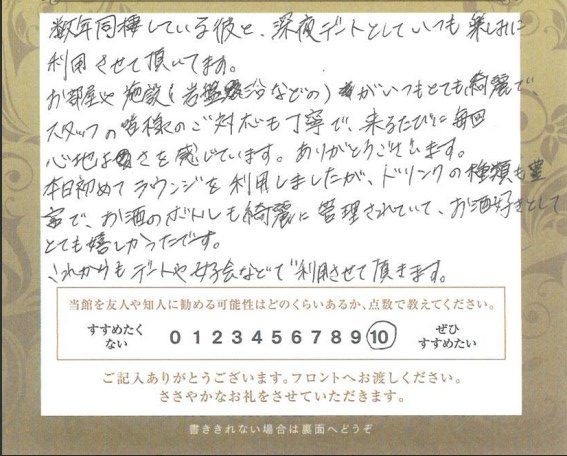 数年同棲している彼と、深夜デートとしていつも楽しみに
利用させて頂いてます。
お部屋や施設(岩盤浴などの)がいつもとても綺麗で、
スタッフの皆様のご対応も丁寧で、来るたびに毎回
心地よさを感じています。ありがとうございます。
本日初めてラウンジを利用しましたが、ドリンクの種類も豊
富で、お酒のボトルも綺麗に管理されていて、お酒好きとして
とても嬉しかったです。
これからもデートや女子会などでご利用させて頂きます。
当館を友人や知人に勧める可能性はどのくらいあるか、点数で教えてください。
すすめたくない 0 1 2 3 4 5 6 7 8 9 10 ぜひすすめたい
ご記入ありがとうございます。フロントへお渡しください。
ささやかなお礼をさせていただきます。
書ききれない場合は裏面へどうぞ